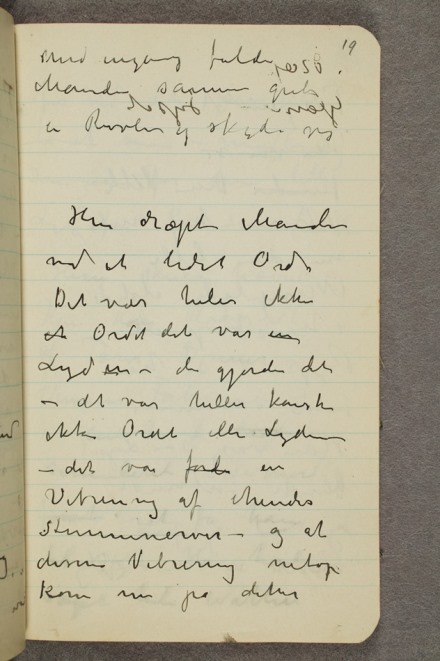 19
med engang faldt
Manden sammen greb
en Revolver og skjød sig
Hun dræpte Manden
med et lidet Ord
Det var heller ikke
et Ordet det var en
Lyden – der gjorde det
– det var heller kanske
ikke Ordet eller Lyden
– det var fordi en
Vibrering af hendes
stemmenerver – og at
denne Vibrering netop
kom nu på dette